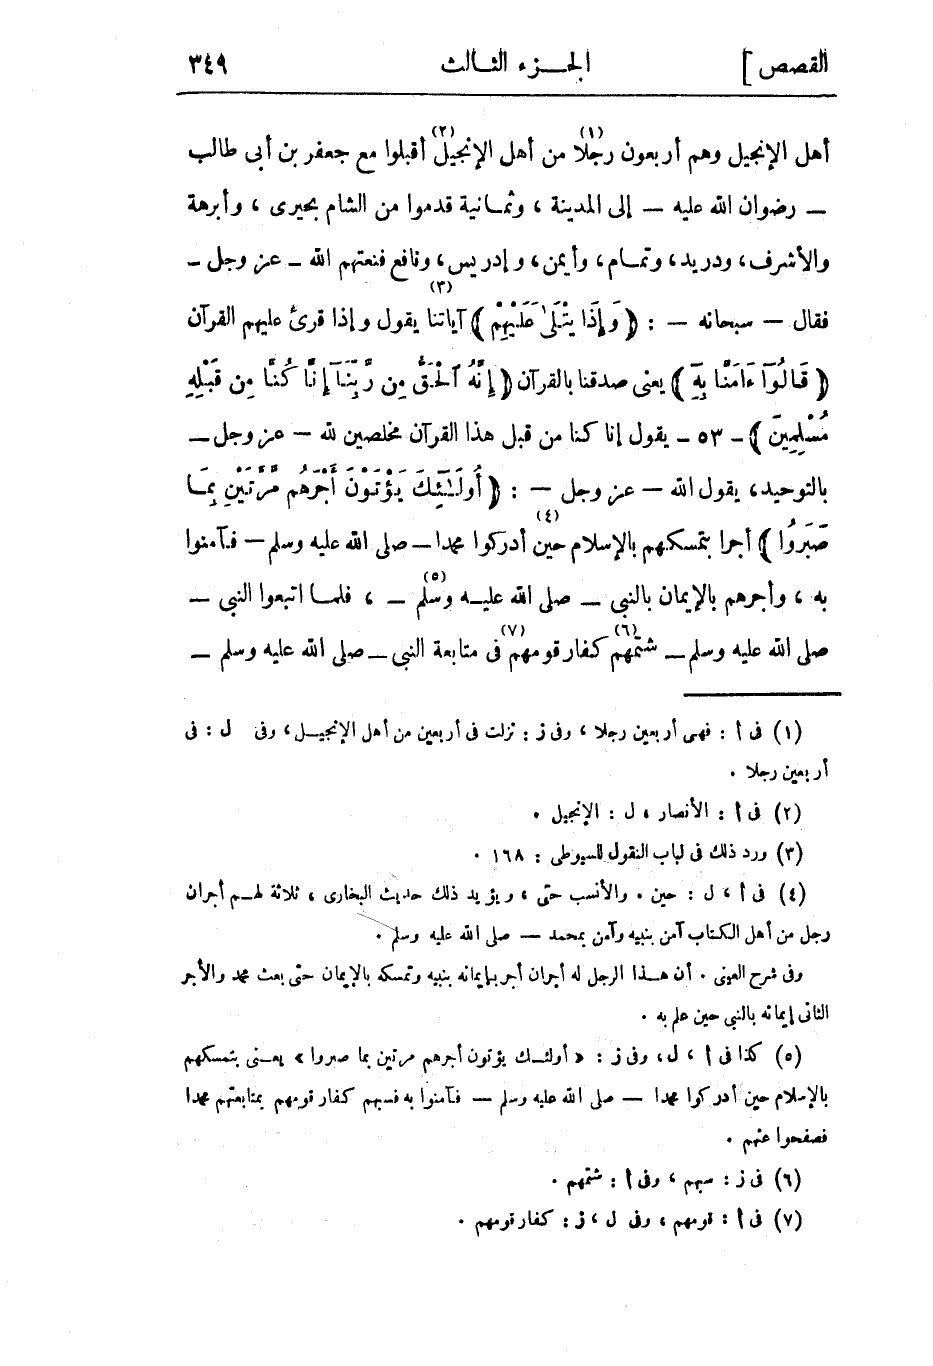 القصص ] الجـــزء الثـالث ٣٤٩
أهل الإنجيل وهم أربعون رجلا (١) من أهل الإنجيل (٢) أقبلوا مع جعفر بن أبى طالب
ـ رضوان الله عليه ـ إلى المدينة ، وثمـانية قدموا من الشام بحيرى ، وأبرهة
والأشرف، ودريد، وتمـام، وأيمن، وإدريس، ونافع فنعتهم الله ـ عز وجل ـ
فقال ـ سبحانه ـ : ﴿ وَإِذَا يُتْلَىٰ عَلَيْهِمْ ﴾ (٣) آياتنا يقول وإذا قرئ عليهم القرآن
﴿ قَالُوٓا۟ ءَامَنَّا بِهِۦٓ ﴾ يعنى صدقنا بالقرآن ﴿ إِنَّهُ ٱلْحَقُّ مِن رَّبِّنَآ إِنَّا كُنَّا مِن قَبْلِهِۦ
مُسْلِمِينَ ﴾ ـ ٥٣ ـ يقول إنا كنا من قبل هذا القرآن مخلصين لله ـ عز وجل ـ
بالتوحيد، يقول الله ـ عز وجل ـ : ﴿ أُو۟لَـٰٓئِكَ يُؤْتَوْنَ أَجْرَهُم مَّرَّتَيْنِ بِمَـا
صَبَرُوا۟ ﴾ أجرا بتمسكهم بالإسلام حين (٤) أدركوا محمدا ـ صلى الله عليه وسلم ـ فـآمنوا
به ، وأجرهم بالإيمان بالنبى ـ صلى الله عليـه وسلم (٥) ـ ، فلمـا اتبعوا النبى ـ
صلى الله عليه وسلم ـ شتمهم (٦) كفار قومهم (٧) فى متابعة النبى ـ صلى الله عليه وسلم ـ
(١) فى أ : فهى أربعين رجلا ، وفى ز : نزلت فى أربعين من أهل الإنجيـل، وفى ل : فى
أربعين رجلا .
(٢) فى أ : الأنصار ، ل : الإنجيل .
(٣) ورد ذلك فى لباب النقول للسيوطى : ١٦٨ .
(٤) فى أ ، ل : حين . والأنسب حتى ، ويؤيد ذلك حديث البخارى ، ثلاثة لهـم أجران
رجل من أهل الكتاب آمن بنبيه وآمن بمحمد ـ صلى الله عليه وسلم .
وفى شرح العينى . أن هــذا الرجل له أجران أجر بإيمانه بنبيه وتمسكه بالإيمان حتى بعث محمد والأجر
الثانى إيمانه بالنبى حين علم به .
(٥) كذا فى أ ، ل، وفى ز : « أولئـك يؤتون أجرهم مرتين بما صبروا » يعـنى بتمسكهم
بالإسلام حين أدركوا محمدا ـ صلى الله عليه وسلم ـ فـآمنوا به فسبهم كفار قومهم بمتابعتهم محمدا
فصفحوا عنهم .
(٦) فى ز : سبهم ، وفى أ : شتمهم .
(٧) فى أ : قومهم ، وفى ل ، ز : كفار قومهم .